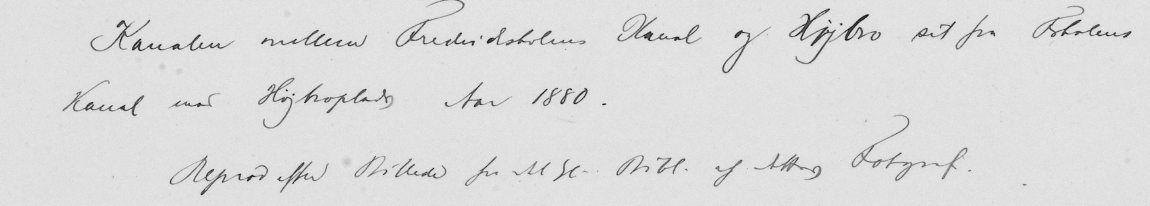 Kanalen mellem Frederiksholms Kanal og Højbro set fra Frholms
Kanal mod Højbroplads Aar 1880.
Reprod efter Billede fra Bibl. af Fotograf.